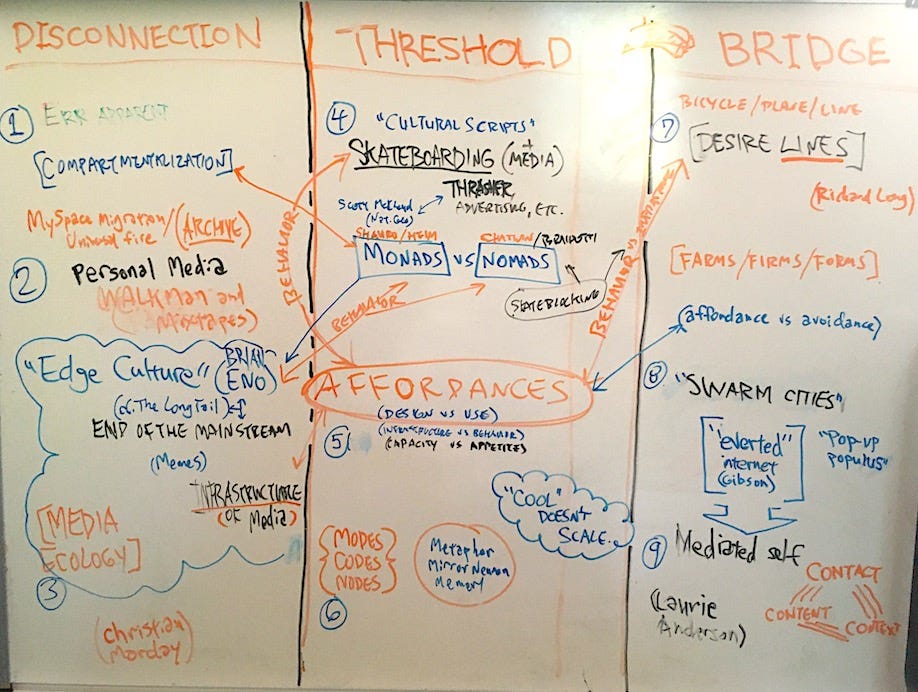 DISCONNECTION
1
ERR APPARENT
[COMPARTMENTALIZATION]
MySpace Migration/
Universal fire
(ARCHIVE)
2
Personal Media
WALKMan and
(Mixtapes)
"Edge Culture"
(BRIAN
ENO)
(cf. The Long Tail)
END OF THE MAINSTREAM
(Memes)
INFRASTRUCTURE
OF Media)
[MEDIA
ECOLOGY]
3
(christian
Morday)
THRESHOLD
4
"CULTURAL SCRIPTS"
SKATEBOARDING (+ MEDIA)
THRASHER,
ADVERTISING, ETC.
(Nat. Geo)
MONADS VS NOMADS
SKATEBLOCKING
BEHAVIOR
BEHAVIOR
AFFORDANCES
(DESIGN VS USE)
(INFRASTRUCTURE VS BEHAVIOR)
(CAPACITY VS APPETITE)
5
"COOL"
DOESN'T
SCALE.
{MODES
CODES
NODES}
Metaphor
Mirror Neuron
Memory
6
BRIDGE
BICYCLE/PLANE/LINE
7
[DESIRE LINES]
(Richard Long)
BEHAVIOR VS
[FARMS/FIRMS/FORMS]
(affordance vs avoidance)
8
"SWARM CITIES"
["everted"
internet
(Gibson)]
"POP-UP
POPULUS"
9
Mediated self
(Laurie
Anderson)
CONTACT
CONTENT
CONTEXT